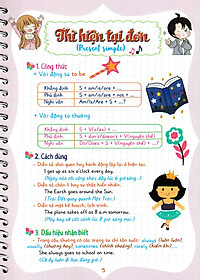 Thì hiện tại đơn
(Present simple)
1. Công thức
+ Với động từ to be
Khẳng định S + am/is/are + ...
Phủ định S + am/is/are + not + ...
Nghi vấn Am/Is/Are + S + ...?
+ Với động từ thường
Khẳng định S + V(s/es) + ...
Phủ định S + don't/doesn't + V(nguyên thể)
Nghi vấn Do/Does + S + V(nguyên thể) + ...?
2. Cách dùng
- Diễn tả thói quen hay hành động lặp lại ở hiện tại.
I get up at six o'clock every day.
(Ngày nào tôi cũng thức dậy lúc 6 giờ sáng.)
- Diễn tả chân lí hay sự thật hiển nhiên.
The Earth goes around the Sun.
(Trái Đất quay quanh Mặt Trời.)
- Diễn tả một kế hoạch, lịch trình.
The plane takes off at 8 a.m tomorrow.
(Máy bay sẽ cất cánh lúc 8 giờ sáng mai.)
3. Dấu hiệu nhận biết
- Trong câu thường có các trạng từ chỉ tần suất: always (luôn luôn),
usually (thường hay), sometimes (thỉnh thoảng), never (không bao giờ),...
She is always on time.
(Cô ấy luôn đi học đúng giờ.)
5